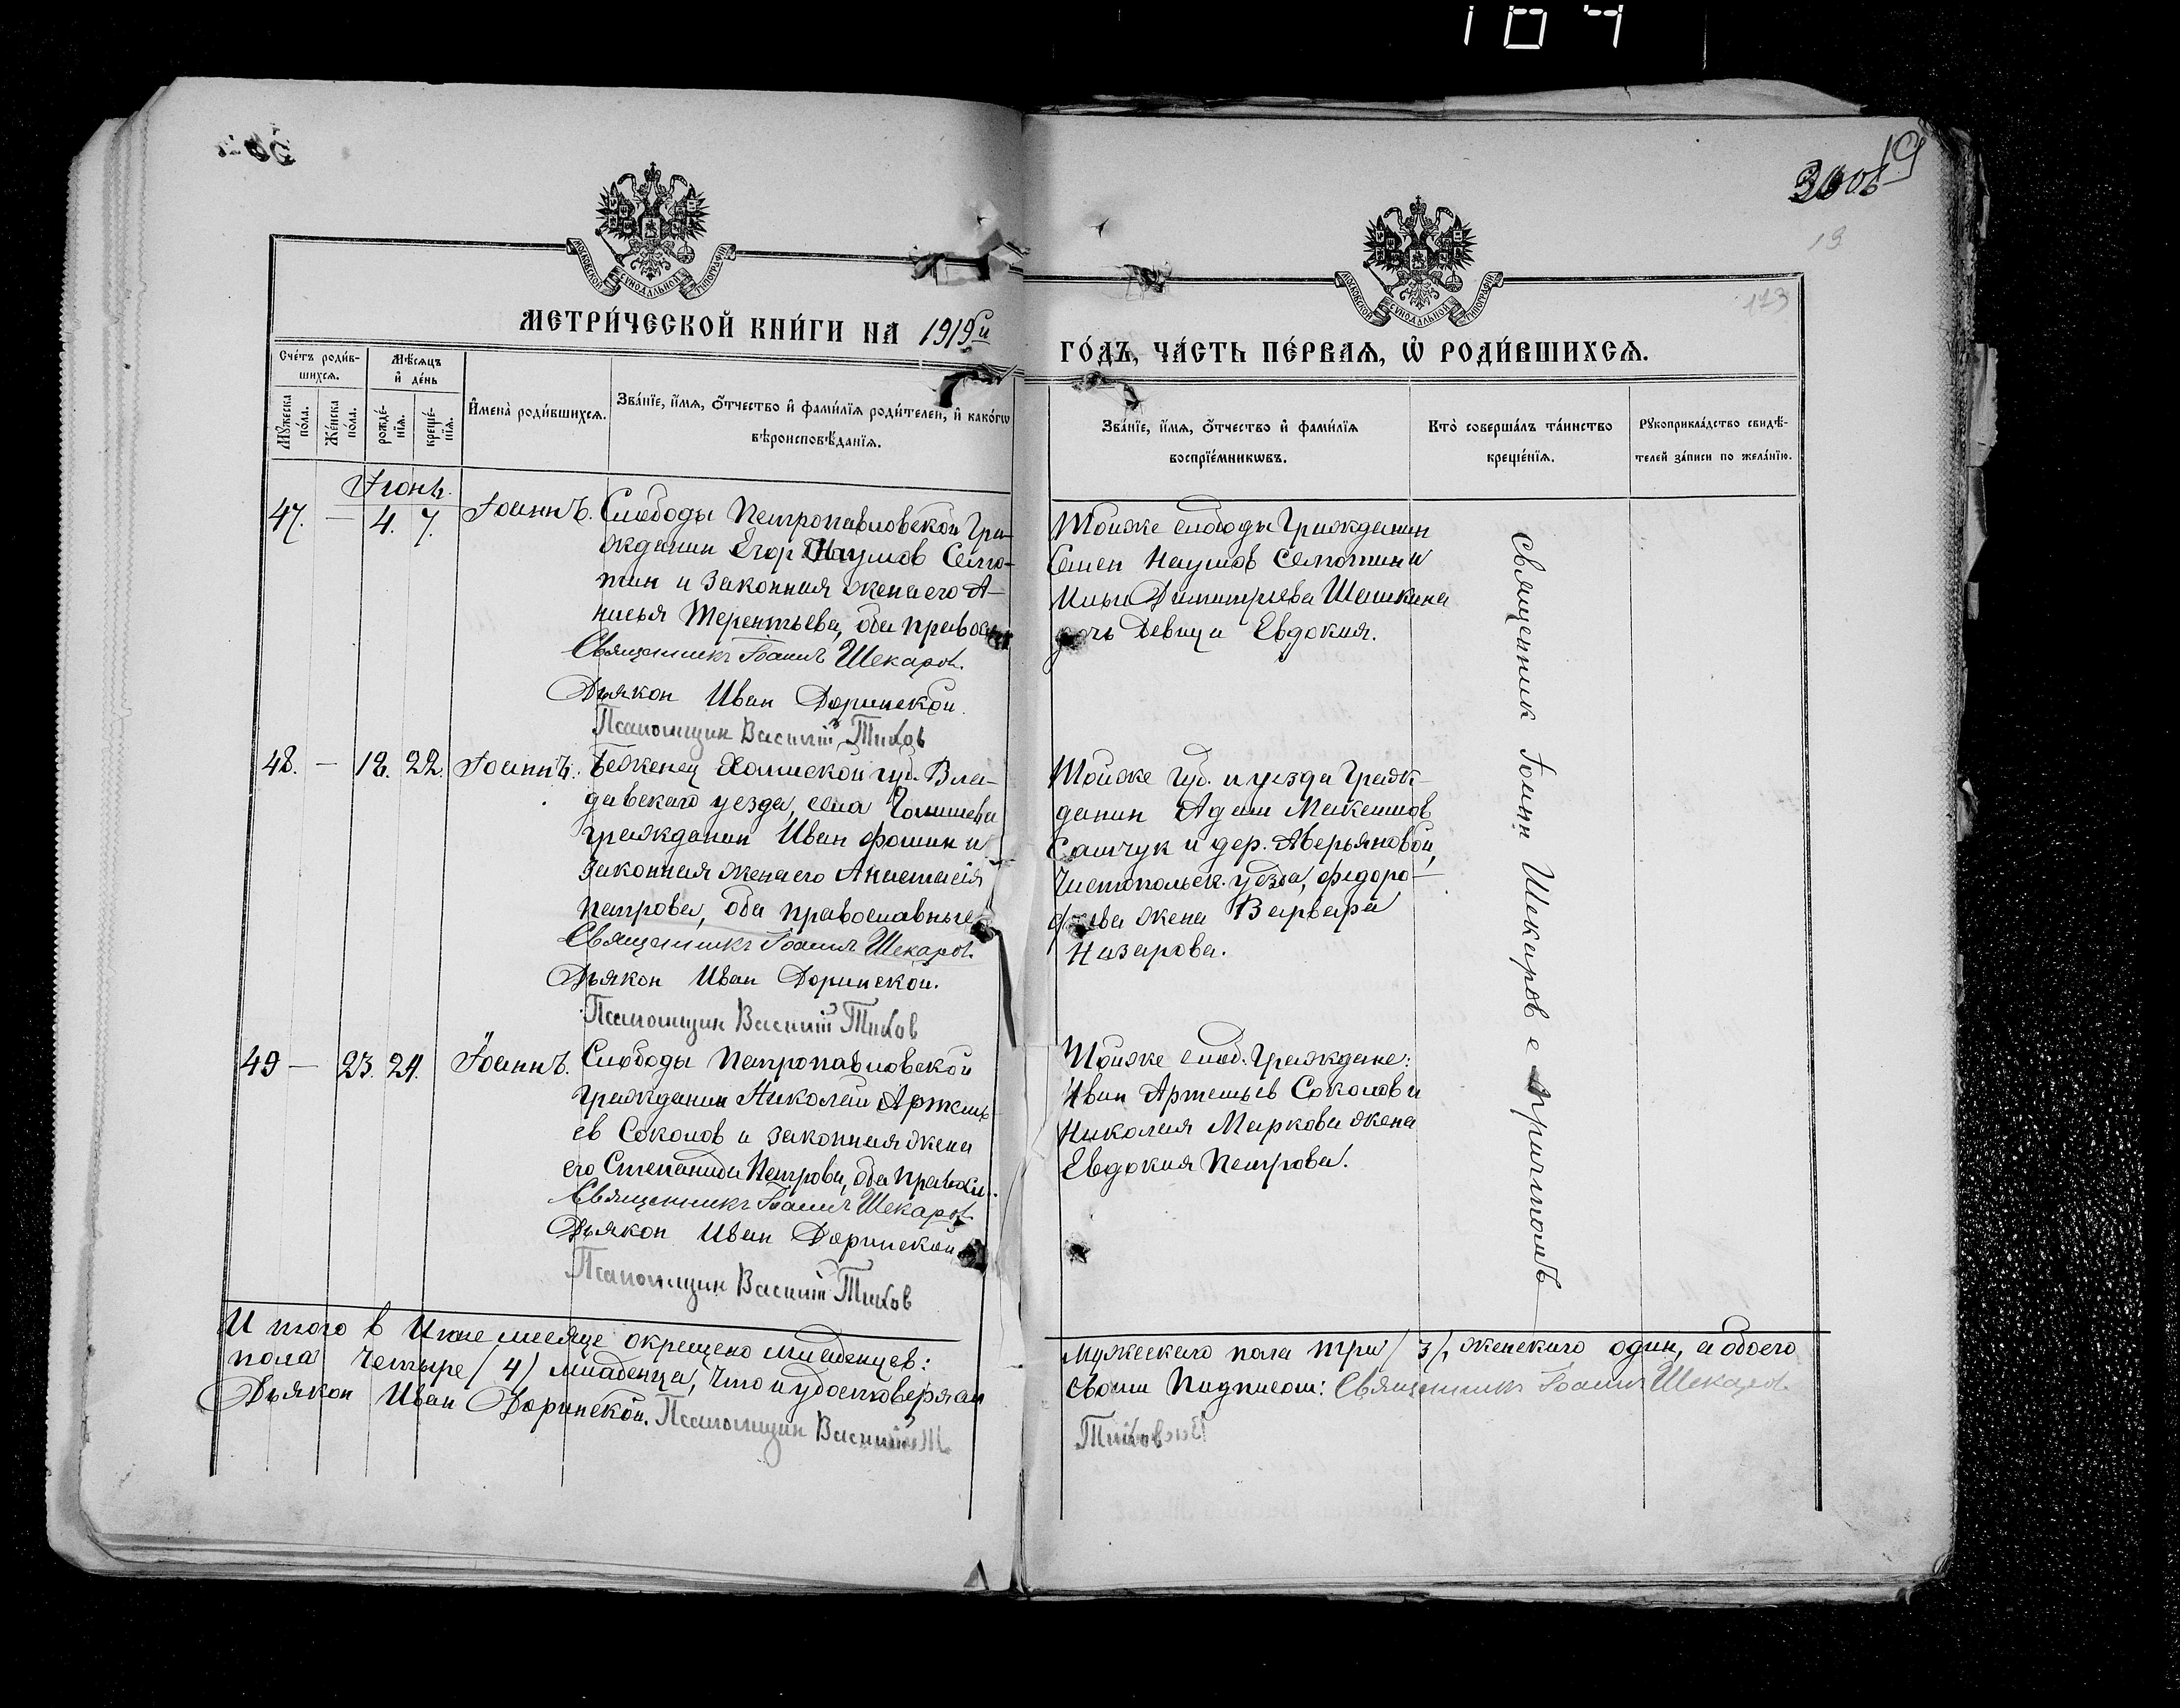 104
19
19
173
МОСКОВСКОЙ СѴНОДАЛЬНОЙ ТИПОГРАФІИ
МОСКОВСКОЙ СѴНОДАЛЬНОЙ ТИПОГРАФІИ
МЕТРИ́ЧЕСКОЙ КНИ́ГИ НА 1919й
ГО́ДЪ, ЧА́СТЬ ПЕ́РВАѦ, Ѡ РОДИ́ВШИХСѦ.
Сче́тъ роди́в-
шихсѧ.
Мꙋ́жеска по́ла.
Же́нска по́ла.
Мѣ́сѧцъ
и҆ де́нь
рожде́-
нїѧ.
креще́-
нїѧ.
И҆мена̀ роди́вшихсѧ.
Зва́нїе, и҆́мѧ, ѻ҆́тчество и҆ фами́лїѧ роди́телей, и҆ како́гѡ
вѣроисповѣ́данїѧ.
Зва́нїе, и҆́мѧ, ѻ҆́тчество и҆ фами́лїѧ
воспрїе́мникѡвъ.
Кто̀ соверша́лъ та́инство
креще́нїѧ.
Рꙋкоприкла́дство свидѣ́-
телей за́писи по жела́нїю.
Іюнь.
47. — 4. 7. Іоаннъ. Слободы Петропавловской Гра-
жданин Егор Наумов Семо-
тин и законная жена его А-
нисья Терентьева, оба правосл.
Священникъ Іоаннъ Шекаров.
Дьякон Иван Доринской.
Псаломщик Василій Тихов
Тойже слободы Гражданин
Семен Наумов Семотин и
Ильи Димитриева Шашкина
дочь девица Евдокия.
48. — 18. 22. Іоаннъ. Беженец Холмской губ. Вла-
давского уезда, села
гражданин Иван Фомин и
законная жена его Анастасія
Петрова, оба православные
Священникъ Іоаннъ Шекаров.
Дьякон Иван Доринской.
Псаломщик Василій Тихов
Тойже Губ. и уезда Граж-
данин Адам
Самчук и дер. Аверьяновой,
Чистопольск. уезда,
жена Варвара
Назарова.
49 — 23. 24. Іоаннъ. Слободы Петропавловской
гражданин Николай Артемь-
ев Соколов и законная жена
его Степанида Петрова, оба правосл.
Священникъ Іоаннъ Шекаров
Дьякон Иван Доринской
Псаломщик Василій Тихов
Тойже слоб. Граждане:
Иван Артемьев Соколов и
Николая Маркова жена
Евдокия Петрова.
Священник Іоанн Шекаров с причтомъ
Итого в Июне месяце окрещено младенцев:
Мужескаго пола три /3/, женскаго один, а обоего
пола четыре /4/ младенца, что и удостоверяем
своим подписом: Священникъ Іоаннъ Шекаров.
Дьякон Иван Доринской. Псаломщик Василій
Тихов